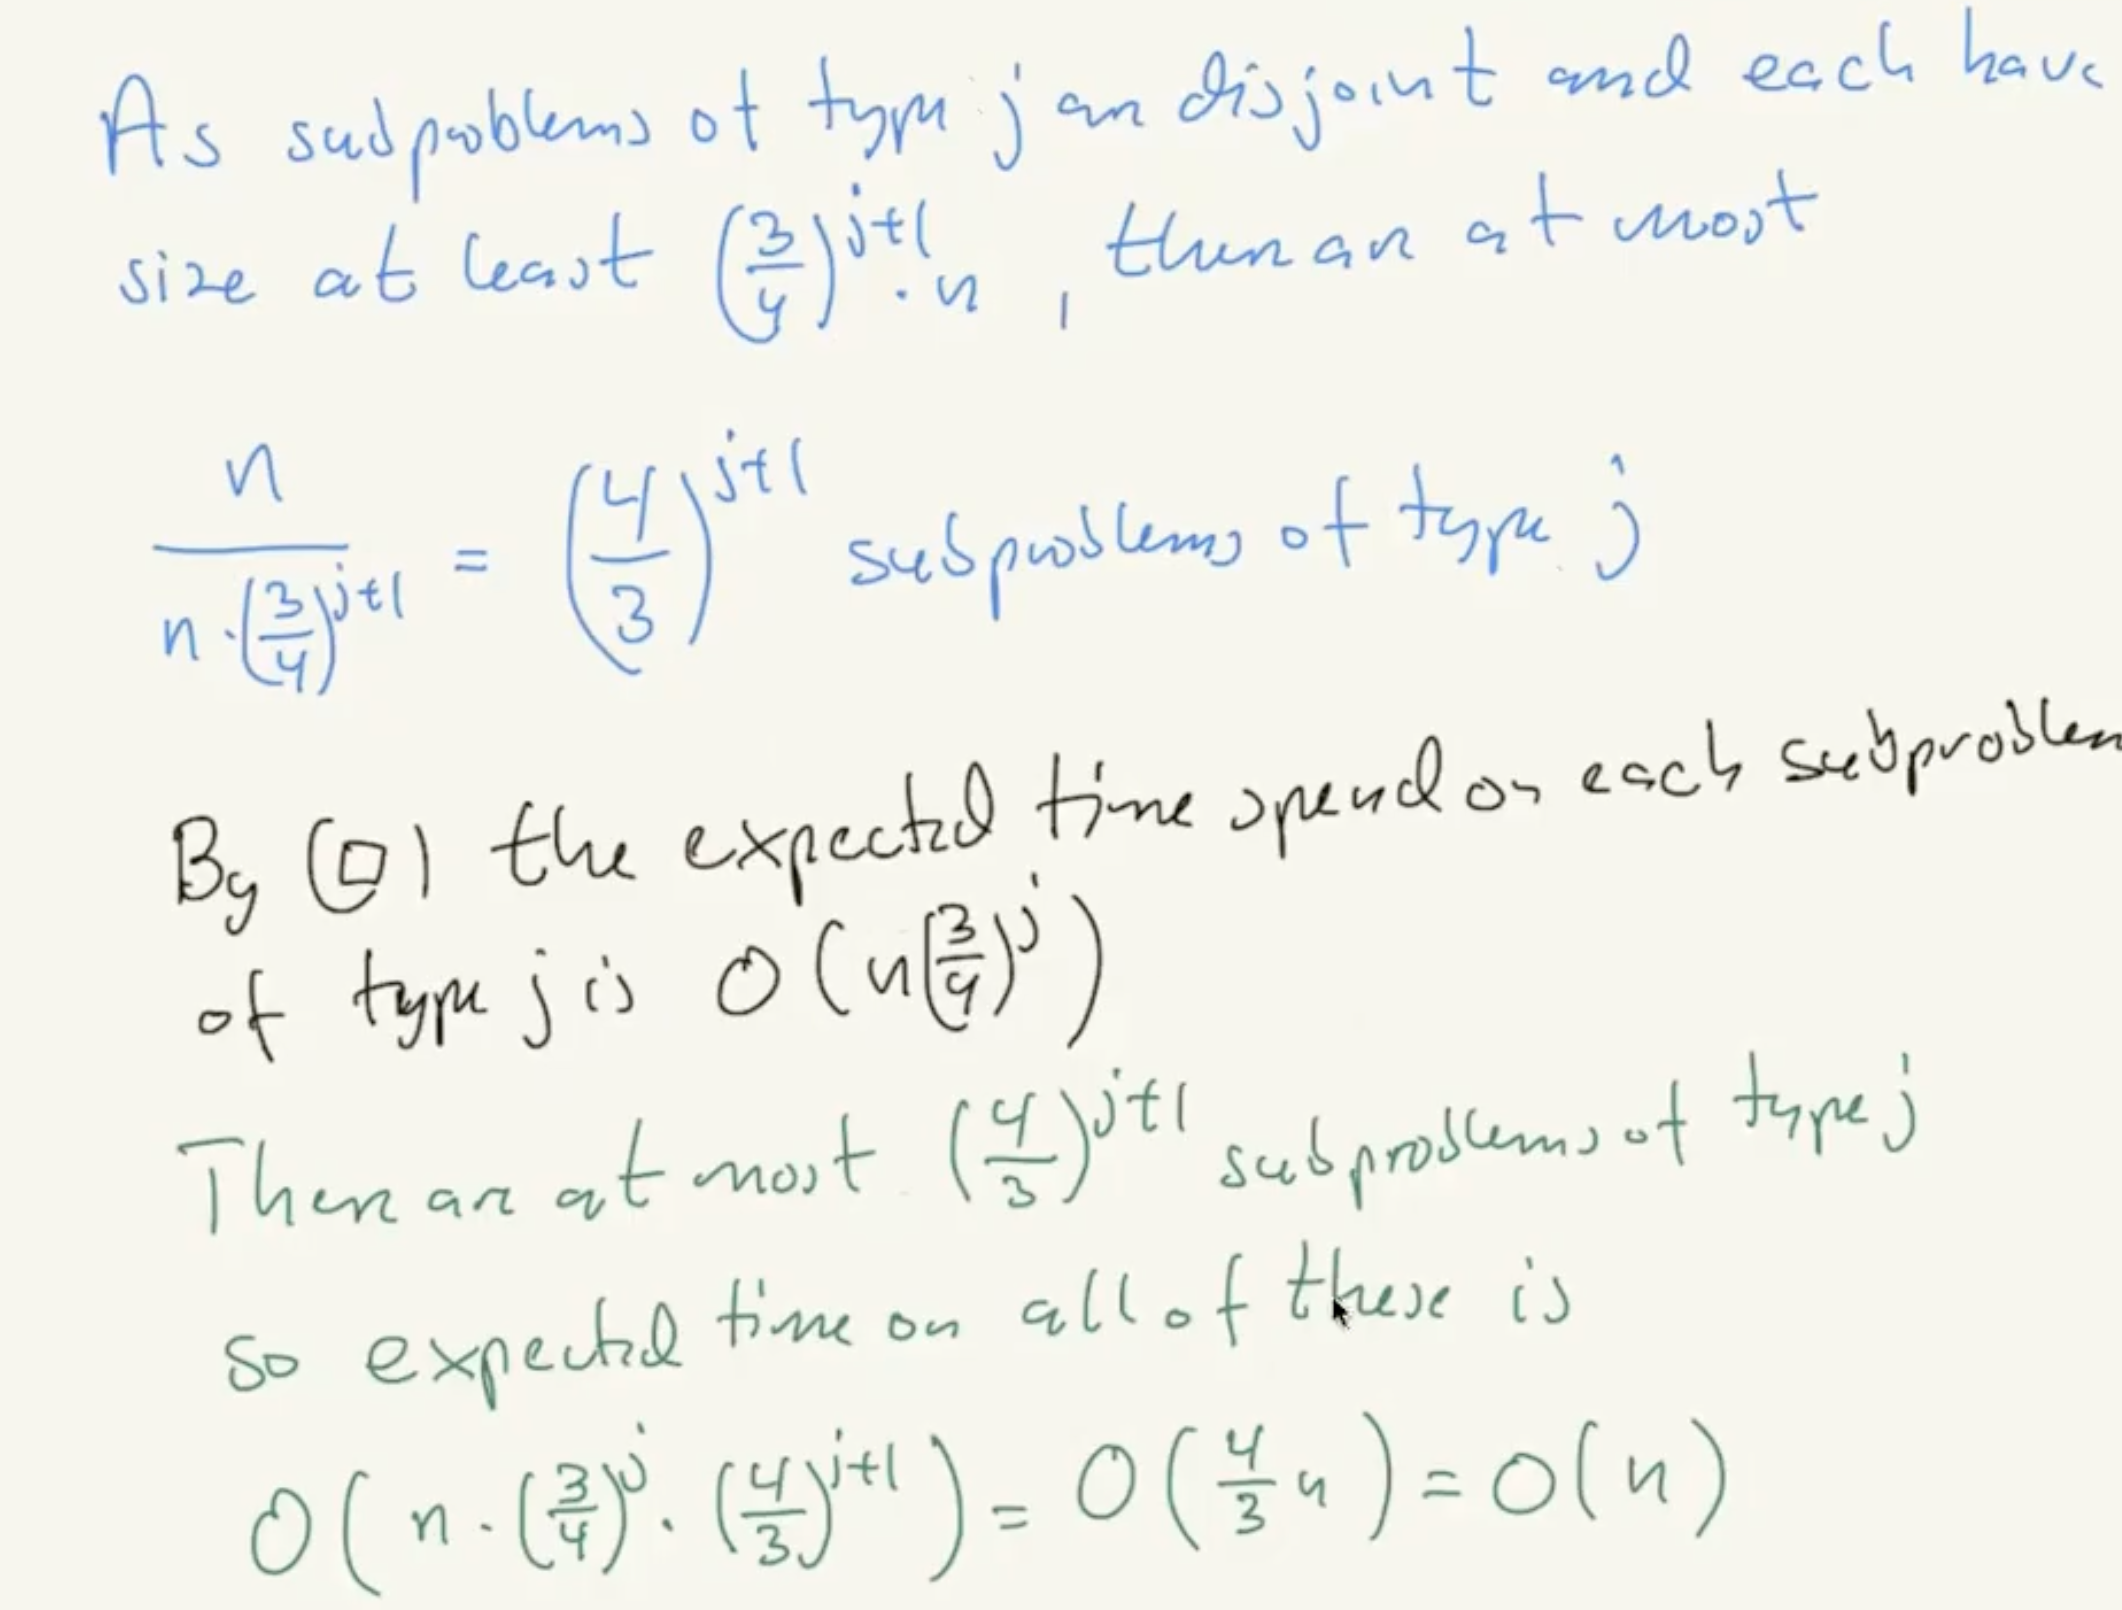 As subproblems of type j are disjoint and each have
size at least (3/4)^{j+1} · n, there are at most
n / (n · (3/4)^{j+1}) = (4/3)^{j+1} subproblems of type j
By (□) the expected time spend on each subproblem
of type j is O(n(3/4)^j)
There are at most (4/3)^{j+1} subproblems of type j
so expected time on all of these is
O(n · (3/4)^j · (4/3)^{j+1}) = O(4/3 n) = O(n)